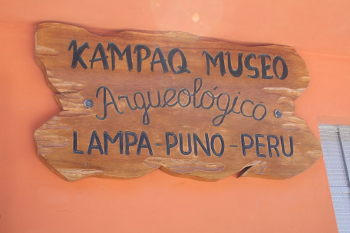 KAMPAQ MUSEO
Arqueológico
LAMPA-PUNO-PERU